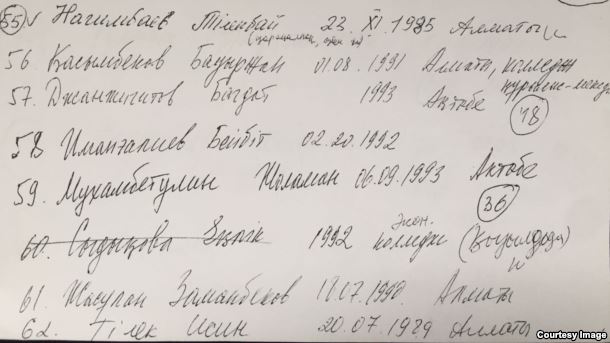 55) Нагимбаев Тілекбай 23. XI. 1985 Алматы
56. Касымбеков Бауыржан 01.08. 1991 Алмати, колледж
57. Джанжигитов Багдат 1993 Актобе
48
58 Имангалиев Бейбіт 02.20.1992
59. Мухамбетулин Жоламан 06.09.1993 Актобе
36
60. Сыдыкова 1992 Экон. колледж
61. Жасулан Заманбеков 18.07.1990. Алматы
62. Тілек Исин 20.07.1989 Алматы
Courtesy Image